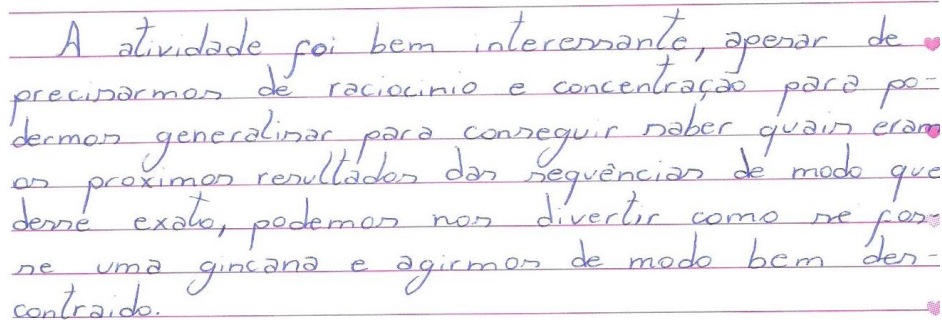 A atividade foi bem interessante, apesar de
precisarmos de raciocinio e concentração para po-
dermos generalisar para conseguir saber quais eram
os proximos resultados das sequências de modo que
desse exato, podemos nos divertir como se fos-
se uma gincana e agirmos de modo bem des-
contraido.